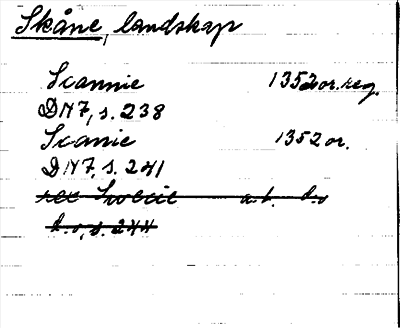 Skåne, landskap
Scannie 1352 or. reg.
DN 7, s. 238
Scanie 1352 or.
DN 7, s. 241
rex Swecie a.b. d.o
d.o, s. 244